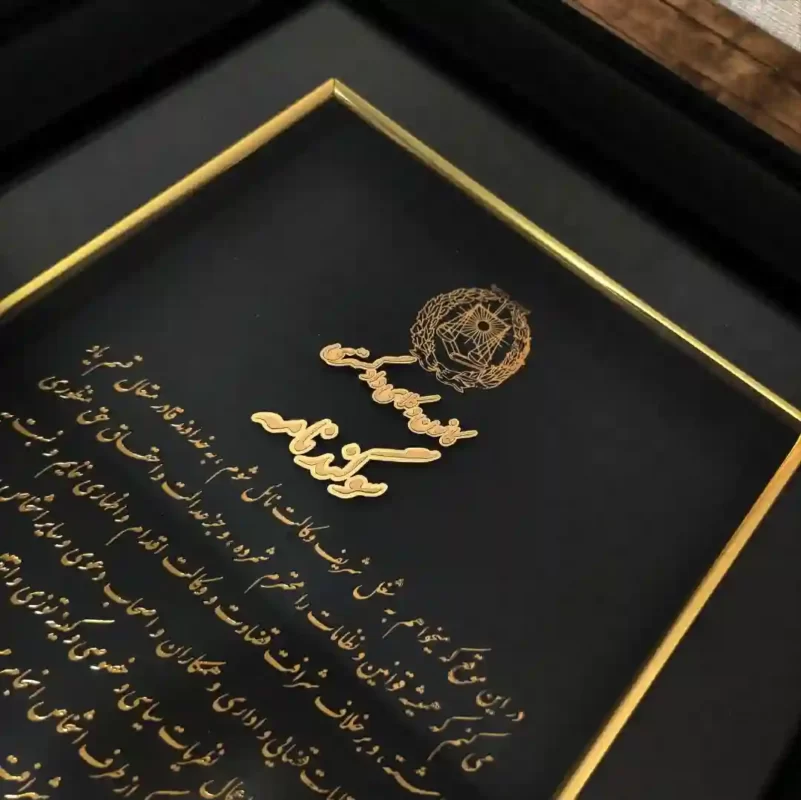 کانون وکلای دادگستری
سوگندنامه
در این موقع که میخواهم به شغل شریف وکالت نائل شوم ، به خداوند قادر متعال قسم یاد
می کنم که همیشه قوانین و نظامات را محترم شمرده ، و جز عدالت و احقاق حق منظوری
شته ، و برخلاف شرافت قضاوت و وکالت اقدام و اظهاری ننمایم و نسبت به
مات قضایی و اداری و همکاران و اصحاب دعوی و سایر اشخاص
مال نظریات سیاسی و خصوصی و کینه توزی و
از طرف اشخاص انجام
شرافت